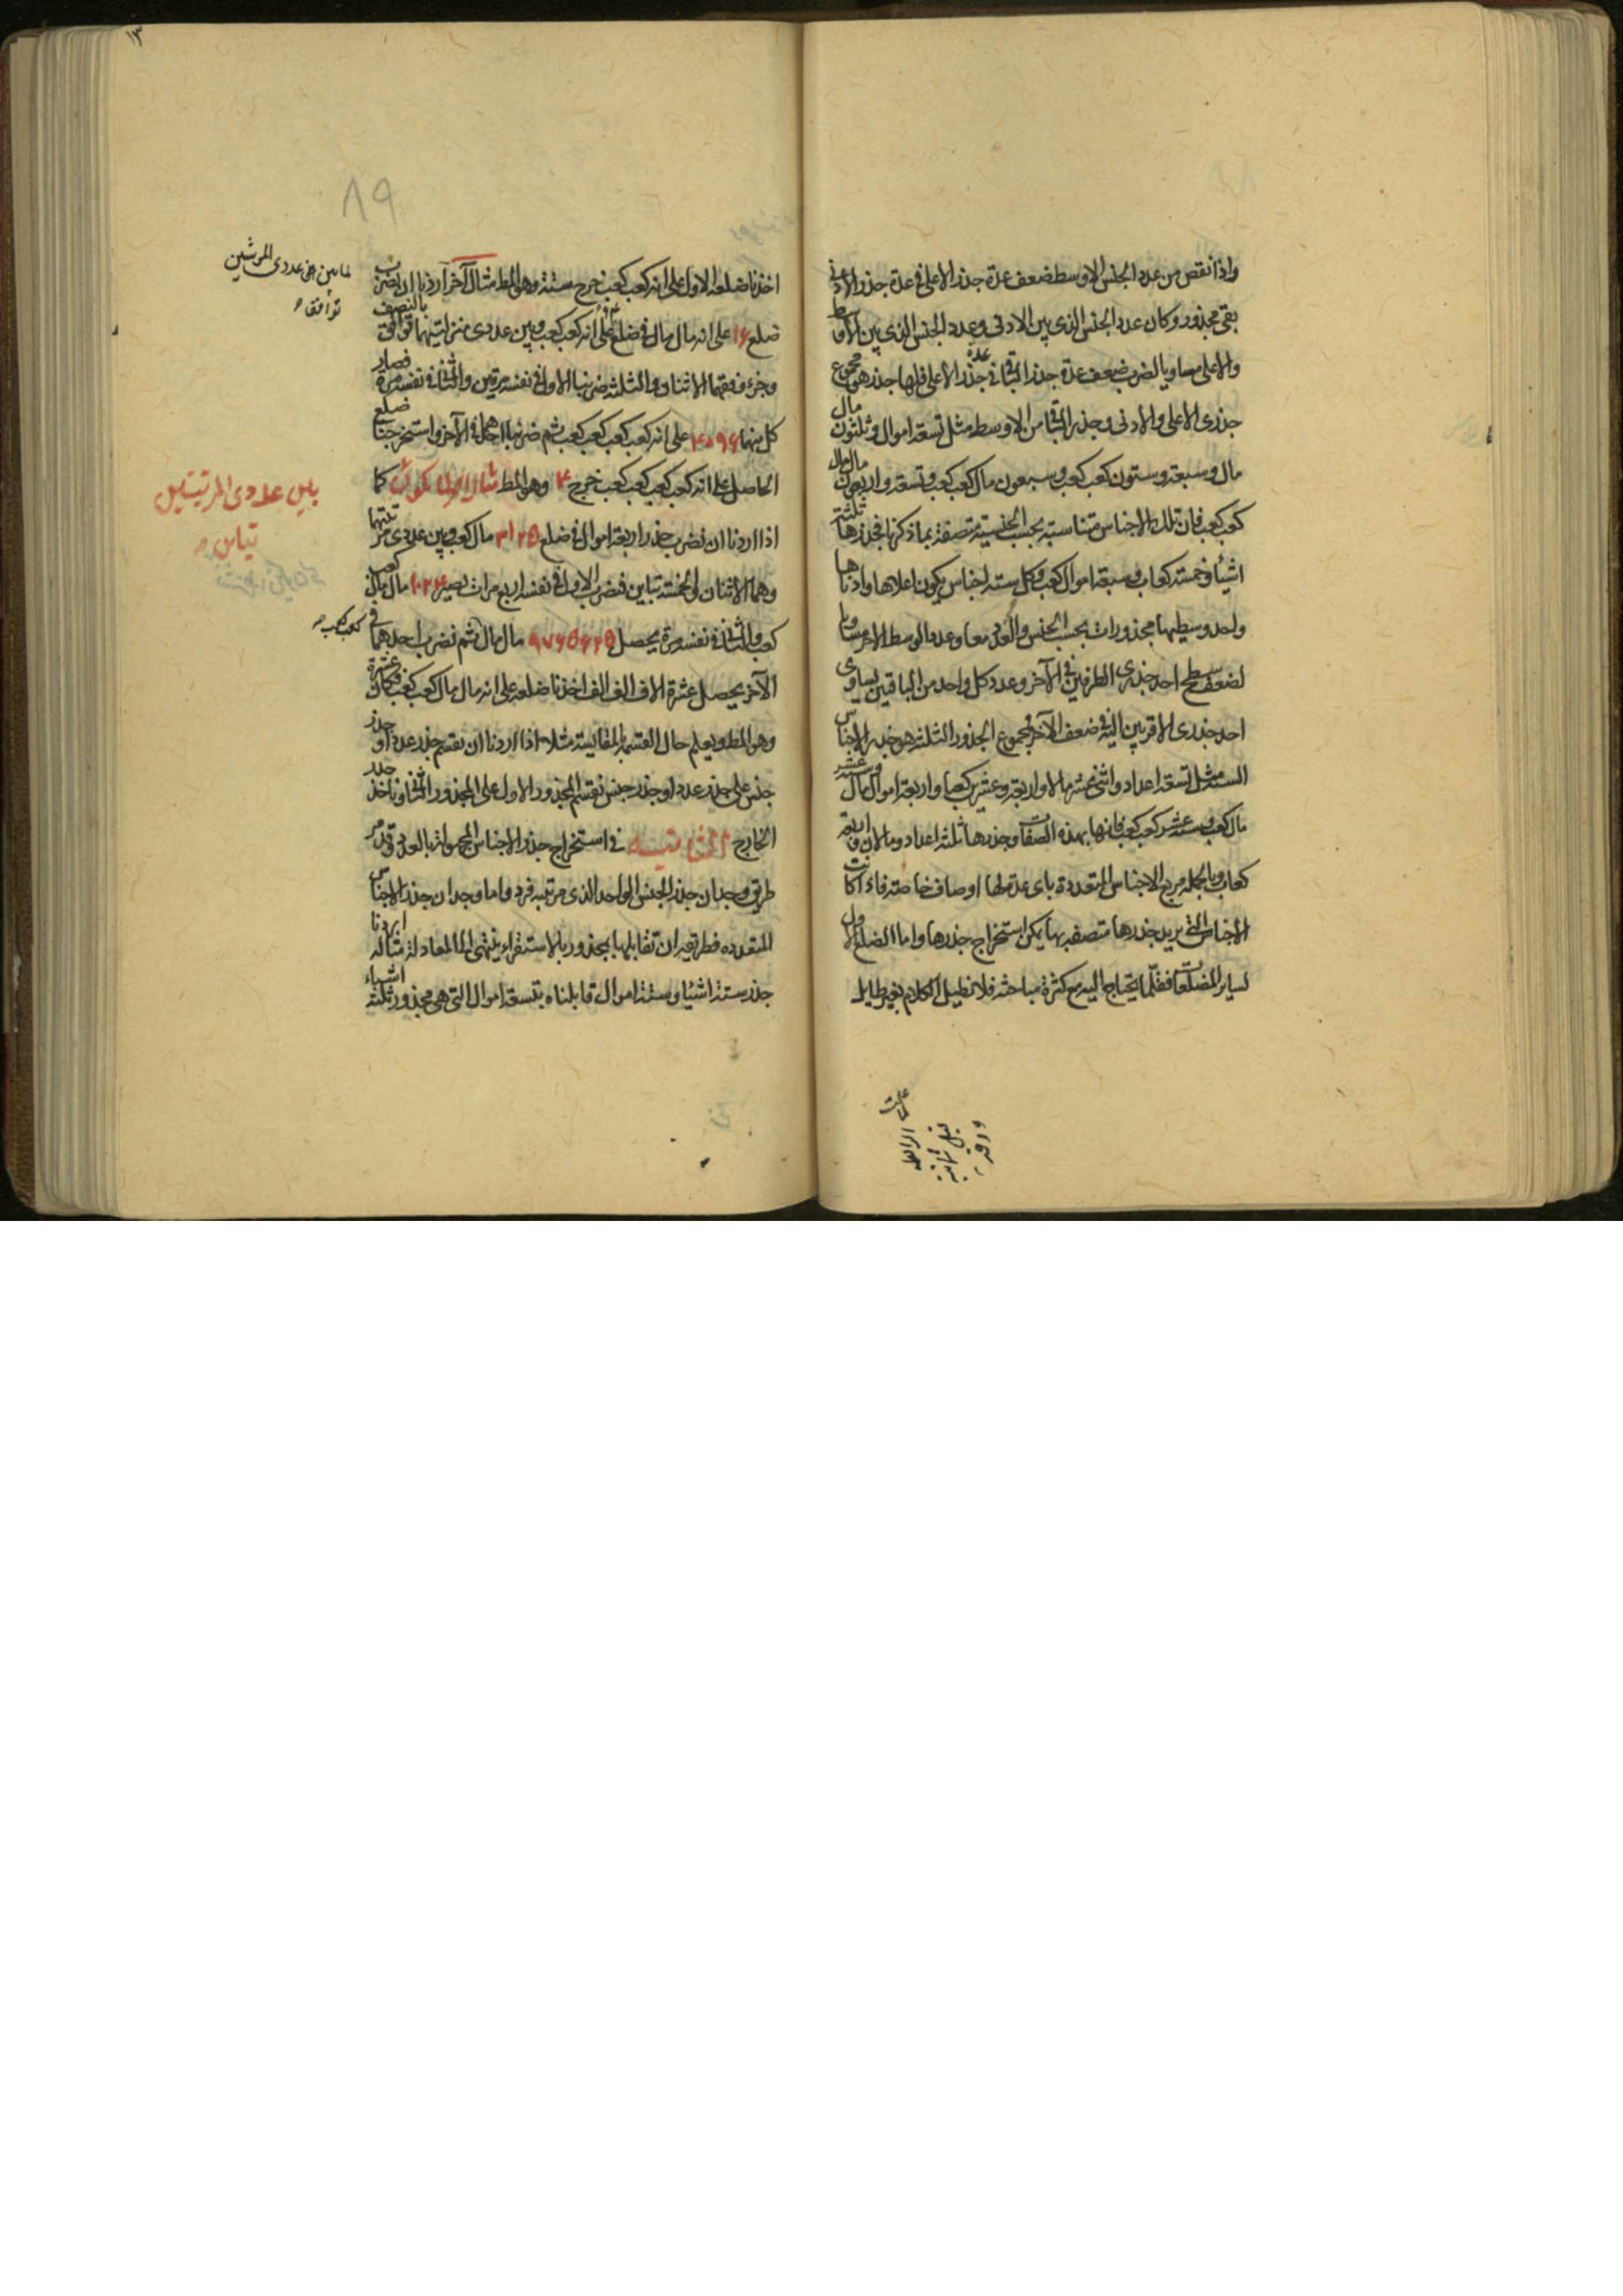 واذا نقص من عدد الجنس الاوسط ضعف عدة جذر الاعلى في عدة جذر الادنى
بقى مجذور وكان عدد الجنس الذى بين الادنى وعدد الجنس الذى بين الاوسط
والاعلى مساويا لضرب ضعف عدة جذر الباقى فى عدة جذر الاعلى فلها جذر هو مجموع
جذرى الاعلى والادنى وجذر الباقى من الاوسط مثل تسعة اموال وثلثون مال
مال وسبعة وستون كعب كعب وسبعون مال كعب كعب وتسعة واربعون مال مال
كعب كعب فان تلك الاجناس متناسبة بحسب الجنسية متصفة بما ذكرنا فجذرها ثلثة
اشياء وخمسة كعاب وسبعة اموال كعب وكل ستة اجناس يكون اعلاها وادناها
واحد وسيطيها مجذورات بحسب الجنس والعدد معا وعدد الوسط الاخر مساويا
لضعف سطح احد جذرى الطرفين فى الآخر وعدد كل واحد من الباقيين يساوى
احد جذرى الاقربين اليه فى ضعف الآخر فمجموع الجذور الثلثة هو جذر الاجناس
الستة مثل تسعة اعداد واثنى عشر مالا واربعة وعشرين كعبا واربعة اموال مال وستة عشر
مال كعب وستة عشر كعب كعب فانها بهذه الصفات وجذرها ثلثة اعداد ومالان واربعة
كعاب وبالجملة مربع الاجناس المتعددة باى عدة لها اوصاف خاصة فاذا كانت
الاجناس التى يريد جذرها متصفة بها يمكن استخراج جذرها واما الضلع الاول
لساير المضلعات فقلّما يحتاج اليه مع كثرة مباحثه فلا نطيل الكلام بغير طايل
٨٩
اخذنا ضلعه الاول على انه كعب كعب خرج ستة وهو المط مثال آخر اردنا ان نضرب
ضلع ١٦ على انه مال مال فى ضلع على انه كعب كعب وبين عددى منزلتيهما توافق بالنصف
وجزء وفقهما الاثنان والثلثة ضربنا الاول فى نفسه مرتين والثانى فى نفسه مرة فصار
كل منهما ٤٠٩٦ على انه كعب كعب كعب كعب ثم ضربنا احدهما فى الآخر واستخرجنا ضلع
الحاصل على انه كعب كعب كعب كعب خرج ٤ وهو المط مثال كما
اذا اردنا ان نضرب جذر اربعة اموال فى ضلع ٣١٢٥ مال كعب وبين عددى مرتبتهما
وهما الاثنان والخمسة تباين فنضرب الاول فى نفسه اربع مرات يصير ١٠٢٤ مال مال
كعب والثانى فى نفسه مرة يحصل ٩٧٦٥٦٢٥ مال مال ثم نضرب احدهما فى
الآخر يحصل عشرة الاف الف الف اخذنا ضلعه على انه مال مال كعب كعب فكان عشرة
وهو المط ويعلم حال القسمة بالمقايسة مثلا اذا اردنا ان نقسم جذر عدد او جذر
جنس على جذر عدد او جذر جنس نقسم المجذور الاول على المجذور الثانى وناخذ جذر
الخارج الثانية فى استخراج جذر الاجناس المجهولة بالعدد وقد مر
طريق وجدان جذر الجنس الواحد الذى مرتبته فرد واما وجدان جذر الاجناس
المتعدده فطريقه ان تقابلها بمجذور بالاستقراء ينتهى الى المعادلة مثاله اردنا
جذر ستة اشياء وستة اموال قابلناه بتسعة اموال التى هى مجذور ثلثة اشياء
توافق
بين عددى المرتبتين
تباين
كعب كعب